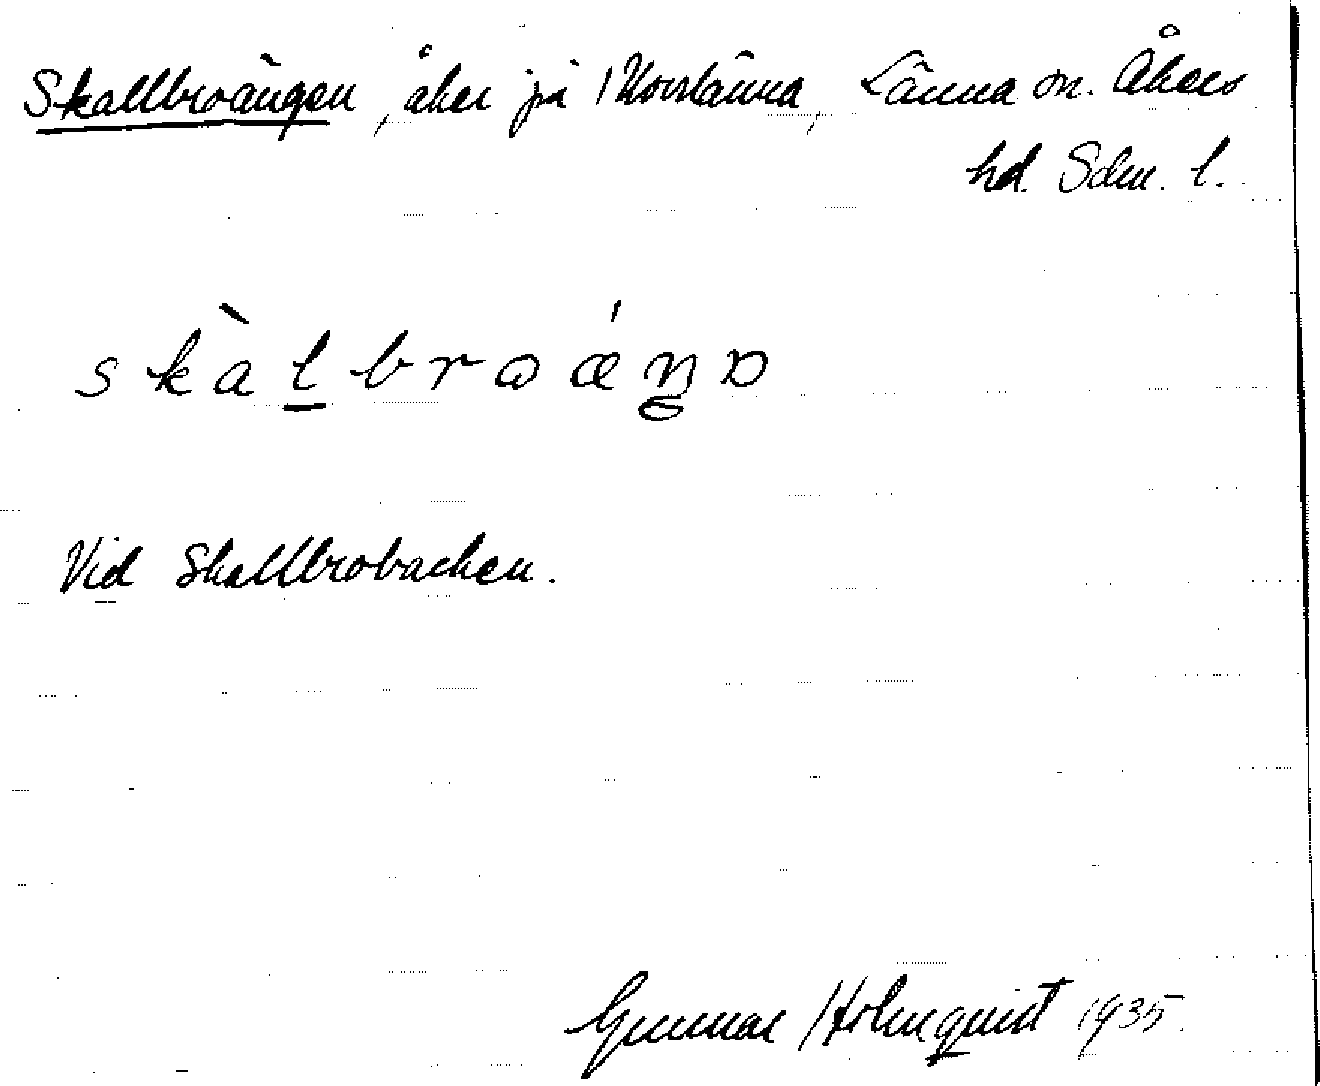 Skallbroängen, åker på Norrlänna, Länna sn. Åkers
hd. Sdm. l.
skàlbroǽŋɒ
Vid Skallbrobacken.
Gunnar Holmquist 1935.